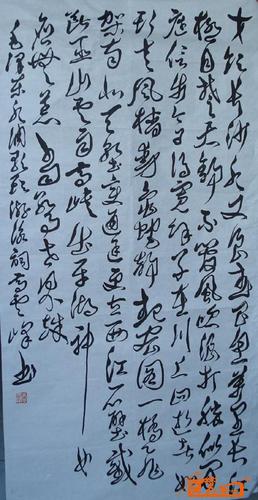 才饮长沙水又食武昌鱼万里长江横渡
极目楚天舒不管风吹浪打胜似闲
庭信步今日得宽馀子在川上曰逝者如
斯夫风樯动龟蛇静起宏图一桥飞
架南北天堑变通途更立西江石壁截
断巫山云雨高峡出平湖神女
应无恙当惊世界殊
毛泽东水调歌头游泳词高云峰书